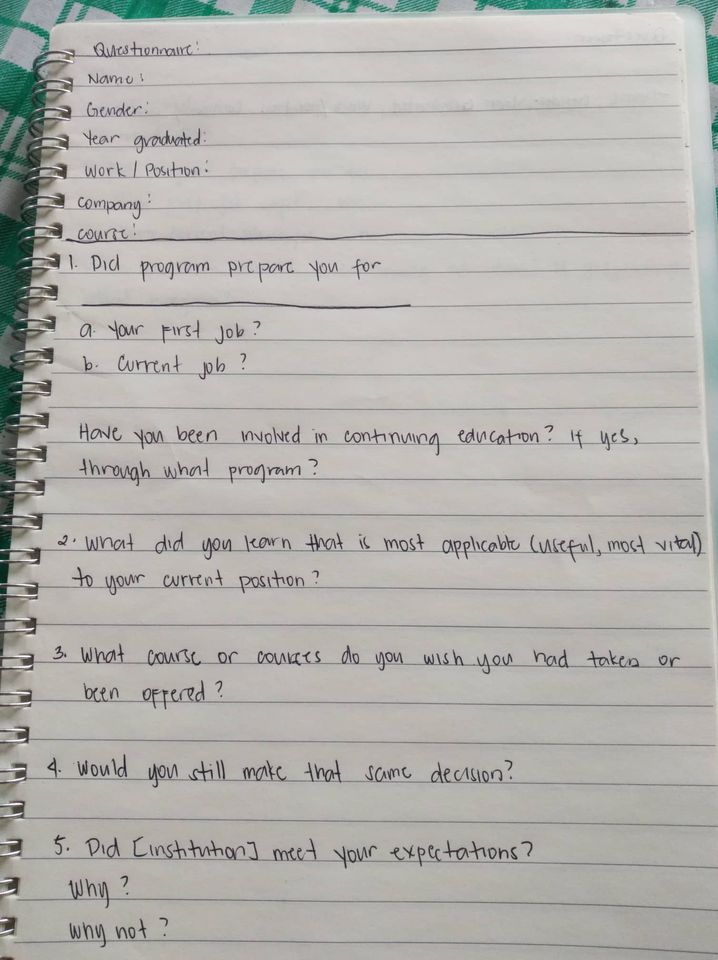 Questionnaire:
Name:
Gender:
Year graduated:
Work / Position:
company:
course:
1. Did program prepare you for
a. Your first job?
b. Current job?
Have you been involved in continuing education? If yes,
through what program?
2. What did you learn that is most applicable (useful, most vital)
to your current position?
3. What course or courses do you wish you had taken or
been offered?
4. Would you still make that same decision?
5. Did [institution] meet your expectations?
Why?
Why not?